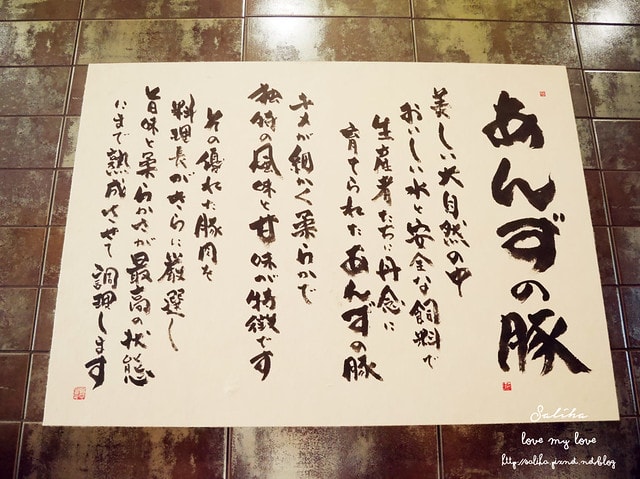 あんずの豚
美しい大自然の中
おいしい水と安全な飼料で
生産者たちに丹念に
育てられたあんずの豚
キメが細かく柔らかで
独特の風味と甘味が特徴です
その優れた豚肉を
料理長がさらに厳選し
旨味と柔らかさが最高の状態
にまで熟成させて調理します
Saliha
love my love
http://saliha.pixnet.net/blog